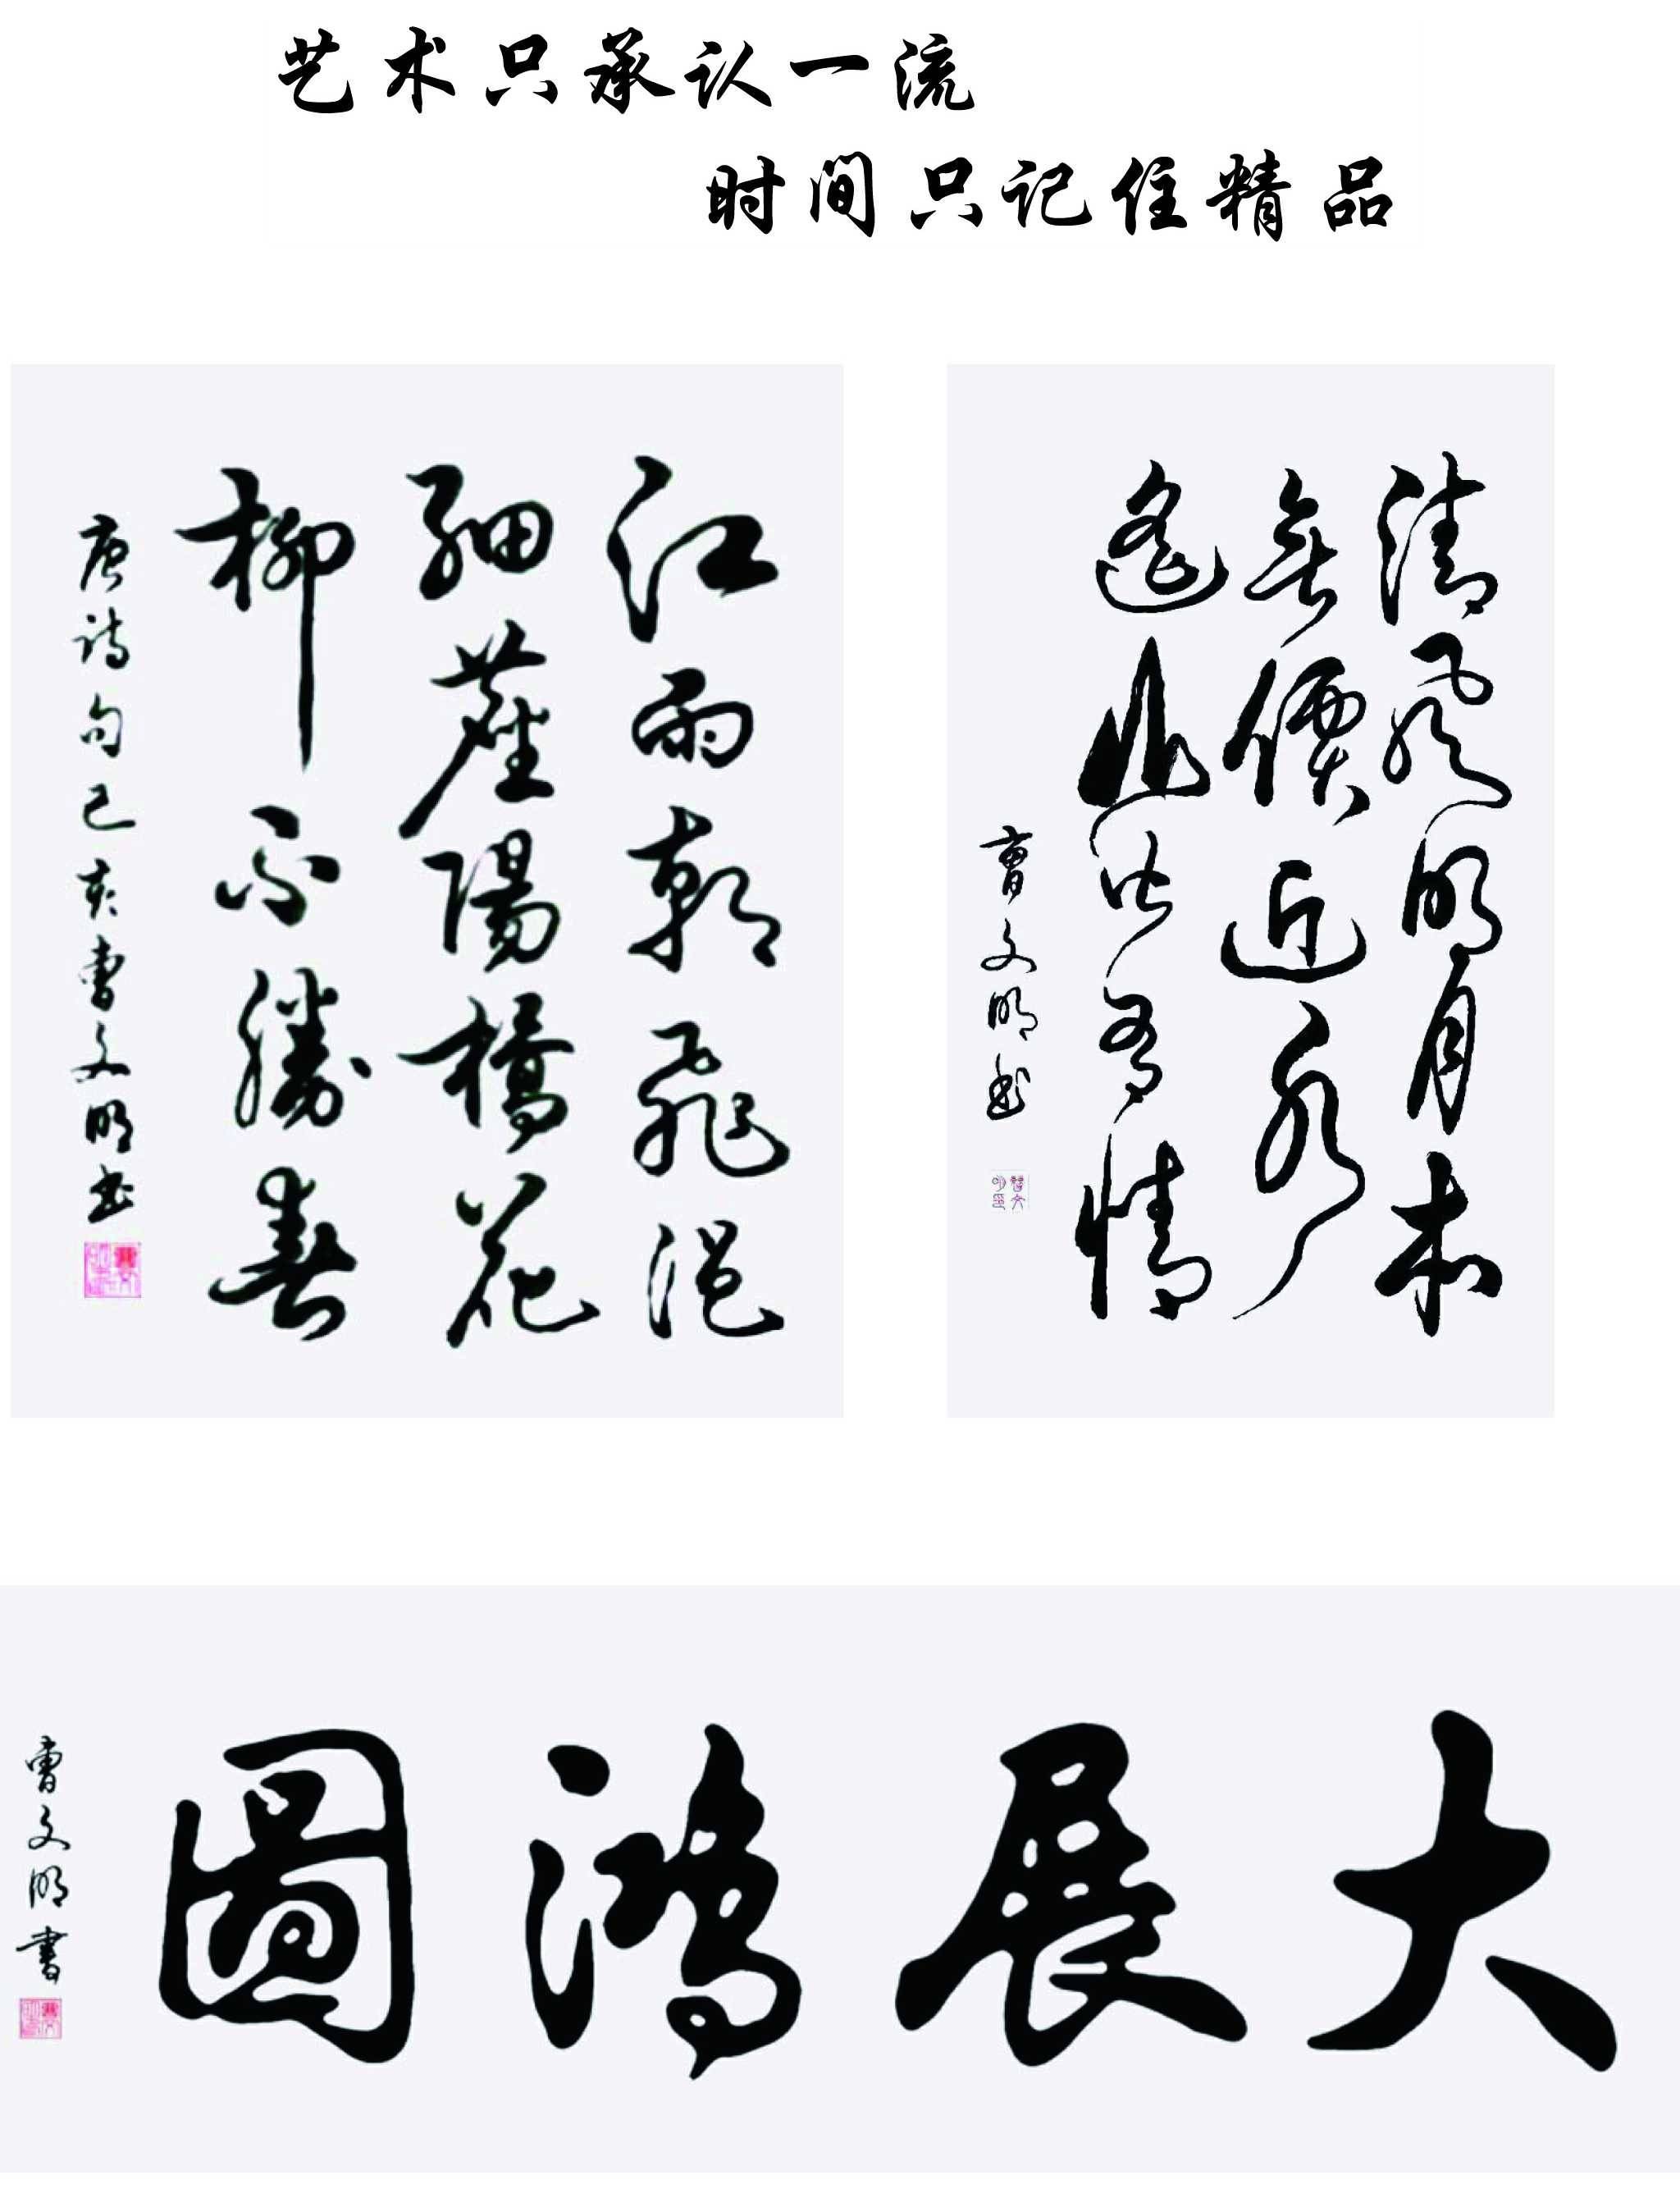 艺术只承认一流
时间只记住精品
江雨朝飛浥
細塵陽橋花
柳不勝春
唐詩句己亥曹文明书
清風明月本
無價近水
遙山皆有情
曹文明书
曹文明印
大展鴻圖
曹文明書